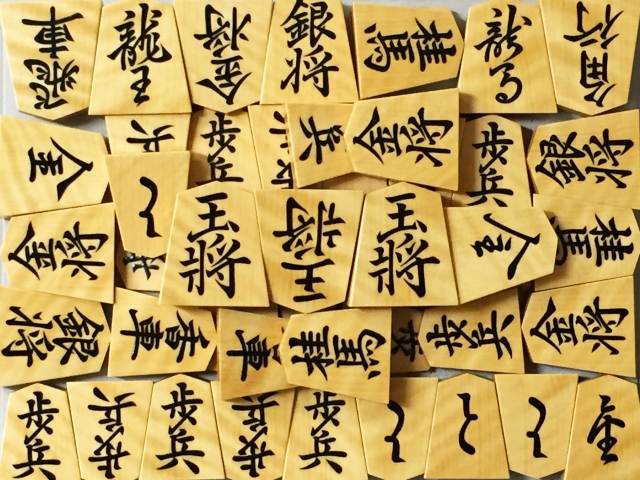 飛車
龍王
金将
銀将
桂馬
龍馬
角行
兵
歩兵
兵
金将
歩兵
銀将
と
金将
王将
王将
王将
桂馬
銀将
香車
車
桂馬
歩兵
金将
歩兵
歩兵
歩兵
歩兵
歩兵
と
と
と